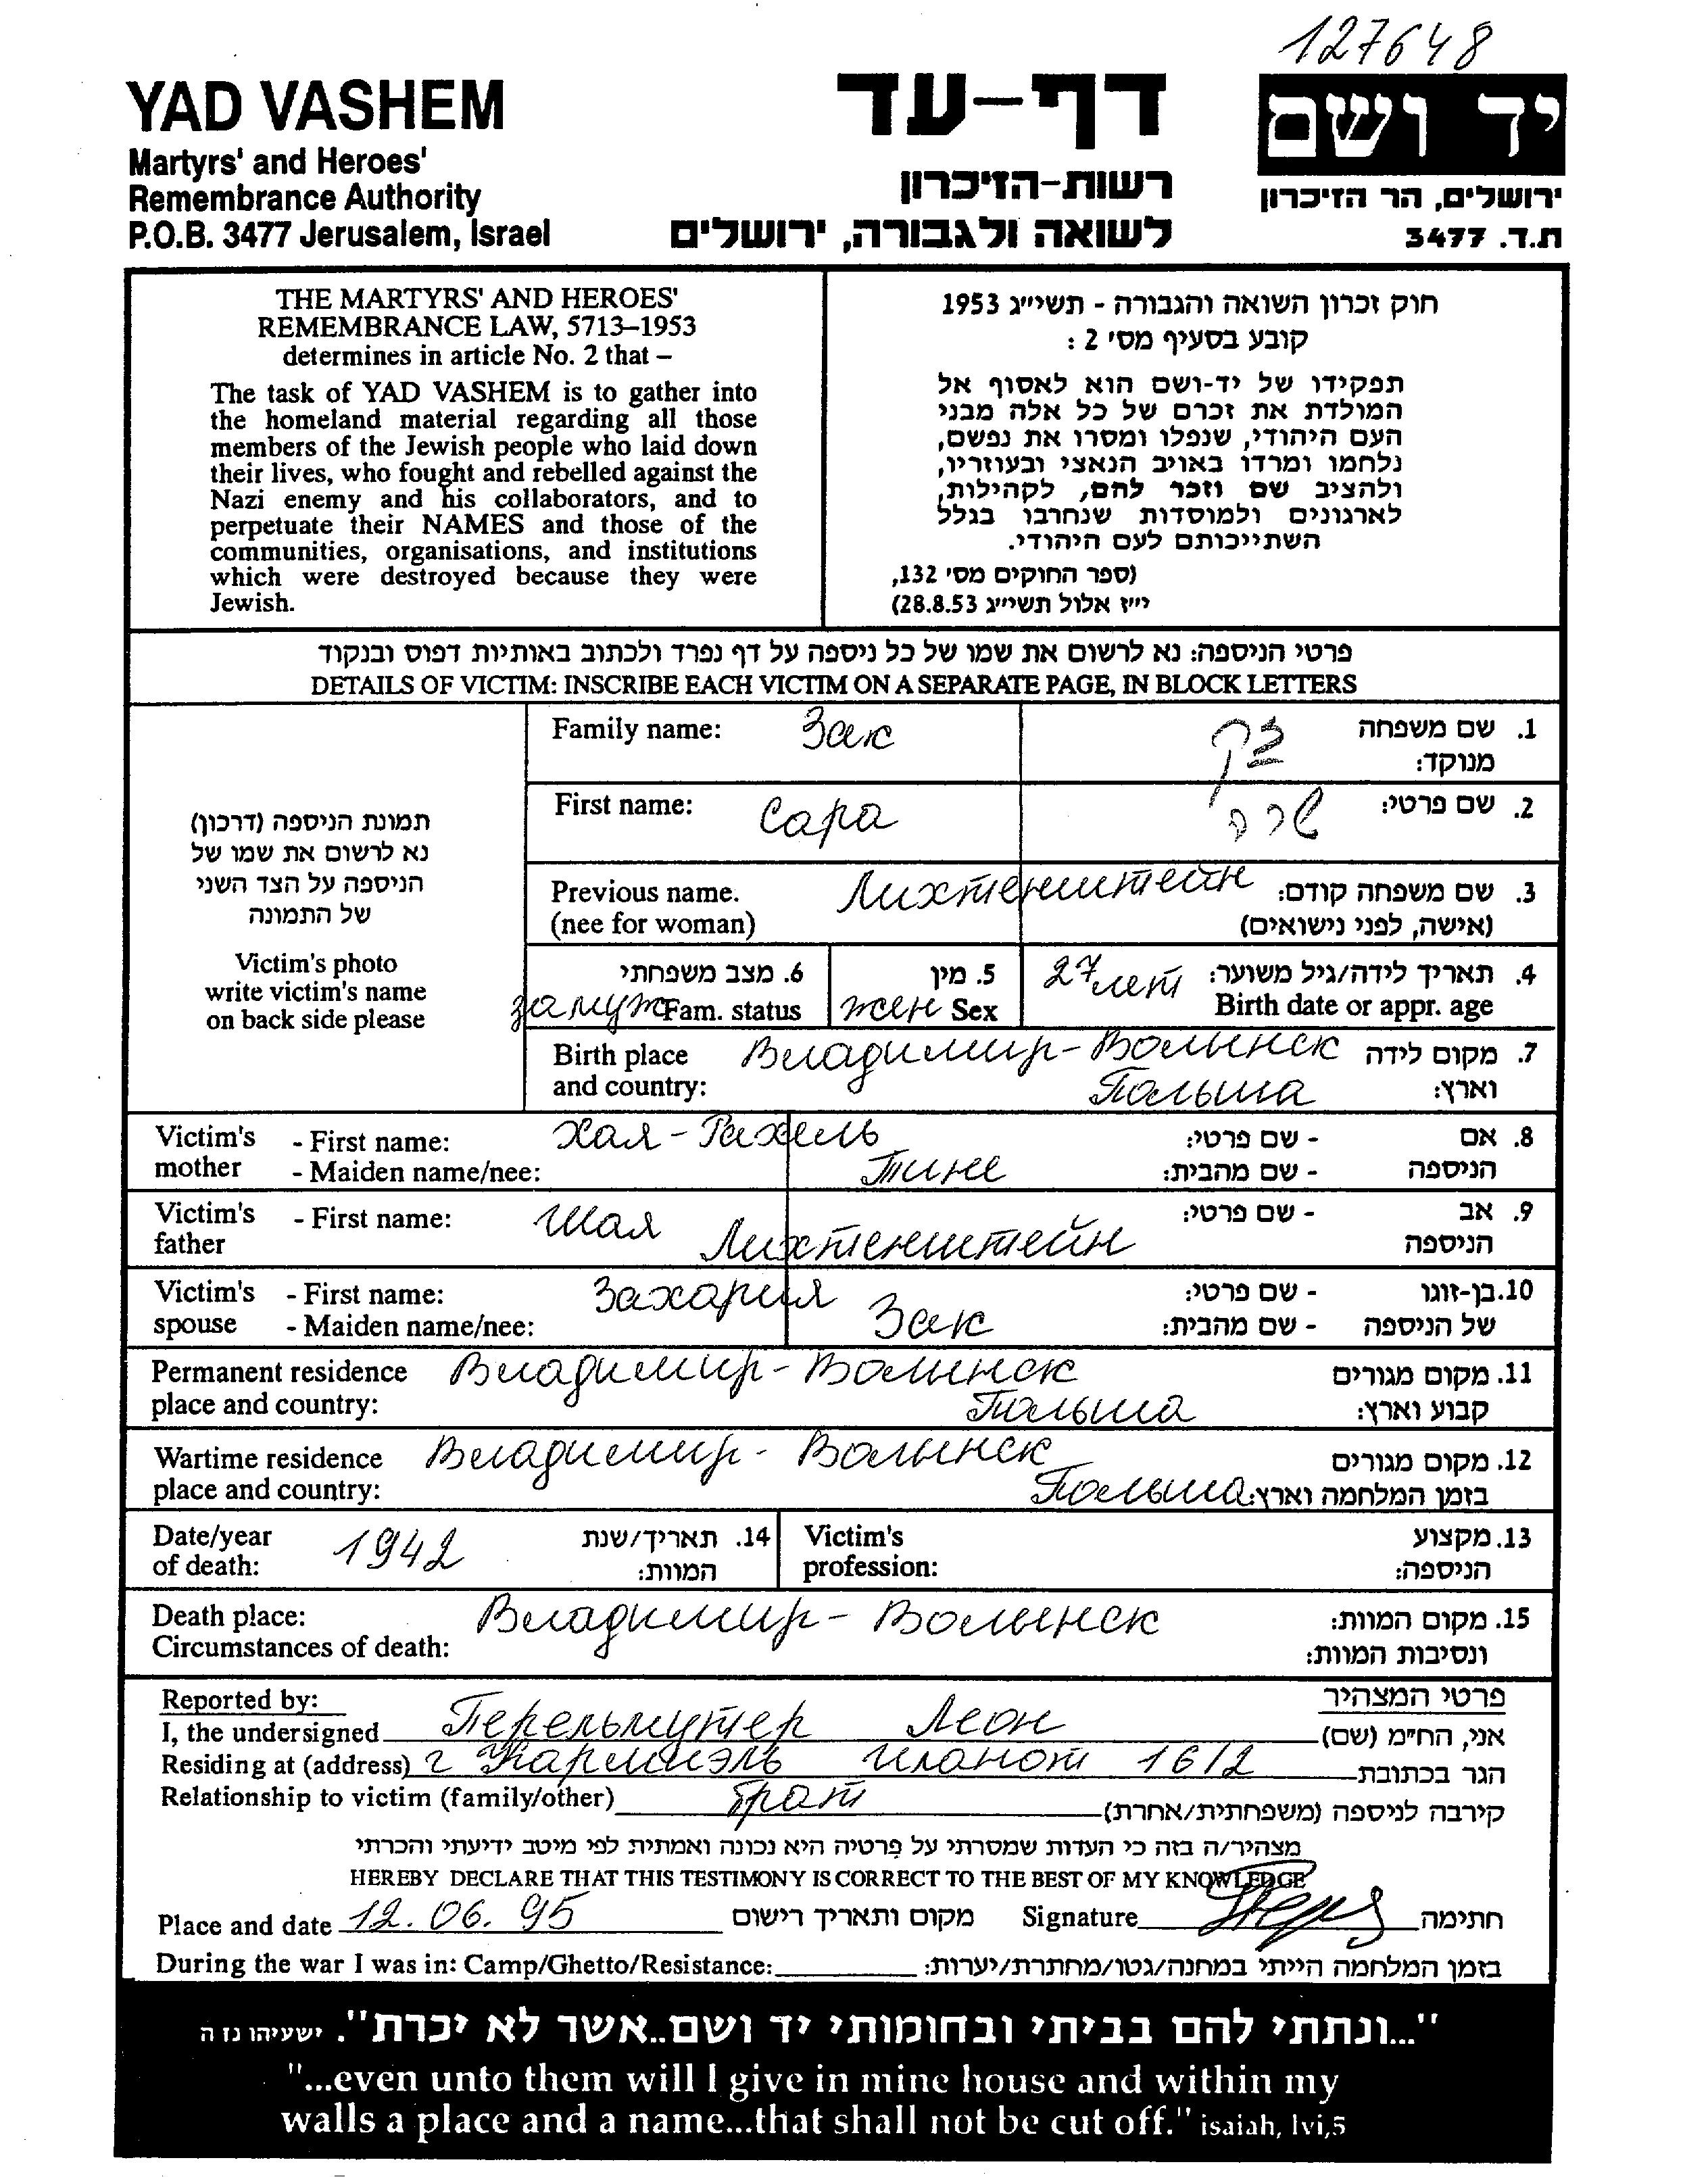 127648
YAD VASHEM
Martyrs' and Heroes'
Remembrance Authority
P.O.B. 3477 Jerusalem, Israel
דף-עד
רשות-הזיכרון
לשואה ולגבורה, ירושלים
יד ושם
ירושלים, הר הזיכרון
ת.ד. 3477
THE MARTYRS' AND HEROES'
REMEMBRANCE LAW, 5713–1953
determines in article No. 2 that –
The task of YAD VASHEM is to gather into
the homeland material regarding all those
members of the Jewish people who laid down
their lives, who fought and rebelled against the
Nazi enemy and his collaborators, and to
perpetuate their NAMES and those of the
communities, organisations, and institutions
which were destroyed because they were
Jewish.
חוק זכרון השואה והגבורה - תשי״ג 1953
קובע בסעיף מס׳ 2 :
תפקידו של יד-ושם הוא לאסוף אל
המולדת את זכרם של כל אלה מבני
העם היהודי, שנפלו ומסרו את נפשם,
נלחמו ומרדו באויב הנאצי ובעוזריו,
ולהציב שם וזכר להם, לקהילות,
לארגונים ולמוסדות שנחרבו בגלל
השתייכותם לעם היהודי.
(ספר החוקים מס׳ 132,
י״ז אלול תשי״ג 28.8.53)
פרטי הניספה: נא לרשום את שמו של כל ניספה על דף נפרד ולכתוב באותיות דפוס ובנקוד
DETAILS OF VICTIM: INSCRIBE EACH VICTIM ON A SEPARATE PAGE, IN BLOCK LETTERS
תמונת הניספה (דרכון)
נא לרשום את שמו של
הניספה על הצד השני
של התמונה
Victim's photo
write victim's name
on back side please
Family name: Зак זק 1. שם משפחה
מנוקד:
First name: Сара שרה 2. שם פרטי:
Previous name. Лихтенштейн 3. שם משפחה קודם:
(nee for woman) (אישה, לפני נישואים)
6. מצב משפחתי 5. מין 27 лет 4. תאריך לידה/גיל משוער:
замуж Fam. status жен Sex Birth date or appr. age
Birth place Владимир-Волынск 7. מקום לידה
and country: Польша וארץ:
Victim's - First name: Хая-Рахель - שם פרטי: 8. אם
mother - Maiden name/nee: Тине - שם מהבית: הניספה
Victim's - First name: Шая - שם פרטי: 9. אב
father Лихтенштейн הניספה
Victim's - First name: Захария - שם פרטי: 10. בן-זוגו
spouse - Maiden name/nee: Зак - שם מהבית: של הניספה
Permanent residence Владимир-Волынск 11. מקום מגורים
place and country: Польша קבוע וארץ:
Wartime residence Владимир-Волынск 12. מקום מגורים
place and country: Польша בזמן המלחמה וארץ:
Date/year 1942 14. תאריך/שנת Victim's 13. מקצוע
of death: המוות: profession: הניספה:
Death place: Владимир-Волынск 15. מקום המוות:
Circumstances of death: ונסיבות המוות:
Reported by: פרטי המצהיר
I, the undersigned Перельмутер Леон אני, הח״מ (שם)
Residing at (address) г Кармиэль иланот 16/2 הגר בכתובת
Relationship to victim (family/other) брат קירבה לניספה (משפחתית/אחרת)
מצהיר/ה בזה כי העדות שמסרתי על פרטיה היא נכונה ואמתית לפי מיטב ידיעתי והכרתי
HEREBY DECLARE THAT THIS TESTIMONY IS CORRECT TO THE BEST OF MY KNOWLEDGE
Place and date 12.06.95 מקום ותאריך רישום Signature חתימה
During the war I was in: Camp/Ghetto/Resistance: בזמן המלחמה הייתי במחנה/גטו/מחתרת/יערות:
"...ונתתי להם בביתי ובחומותי יד ושם..אשר לא יכרת". ישעיהו נז ה
"...even unto them will I give in mine house and within my
walls a place and a name...that shall not be cut off." isaiah, lvi,5